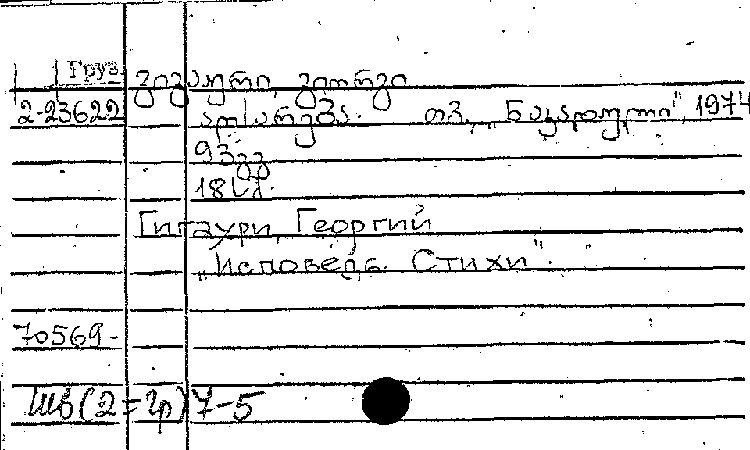 Груз.
გიგაური, გიორგი
2-23622 აღსარება. თბ., „ნაკადული", 1974
93გვ
18სმ.
Гигаури, Георгий
„Исповедь. Стихи".
70569-
Шв(2=Гр)7-5